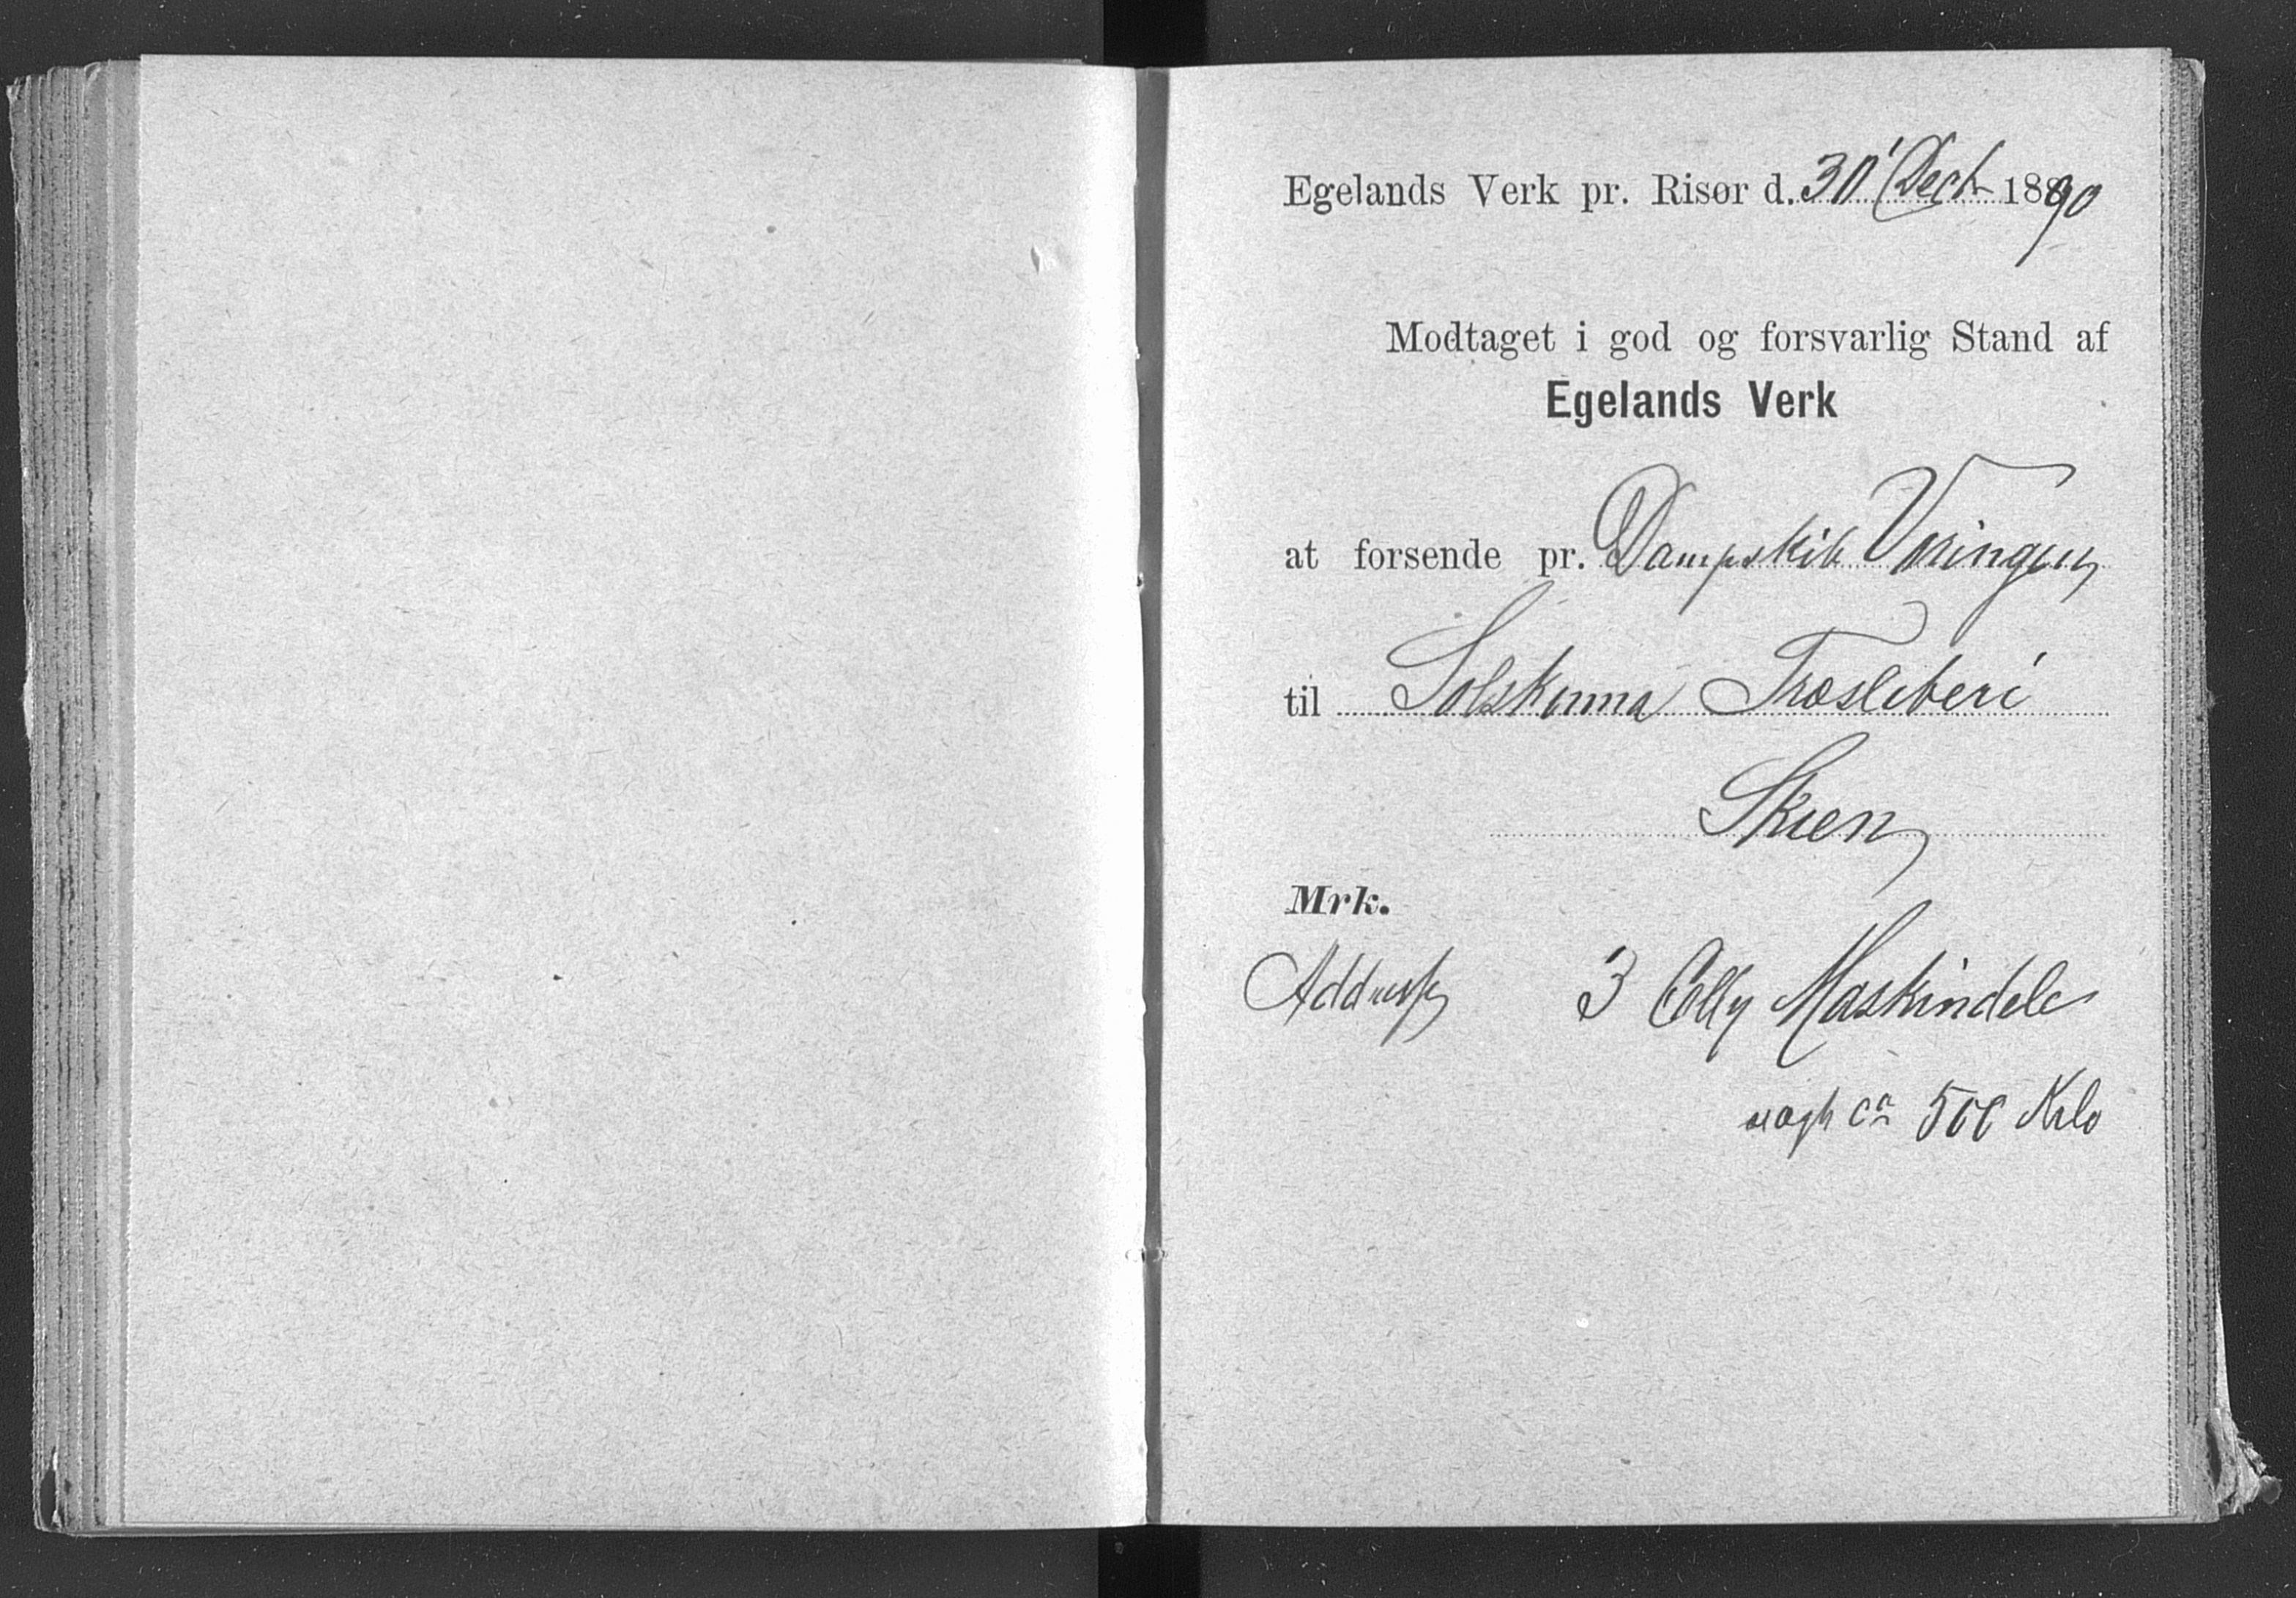 Egelands Verk pr. Risør d. 30' Decbr 1890
Modtaget i god og forsvarlig Stand af
Egelands Verk
at forsende pr. Dampskib Vøringen
til Solskinna Træsliberi
Skien
Mrk.
Addresse 3 Colly Maskindele
vægt ca 500 Kilo